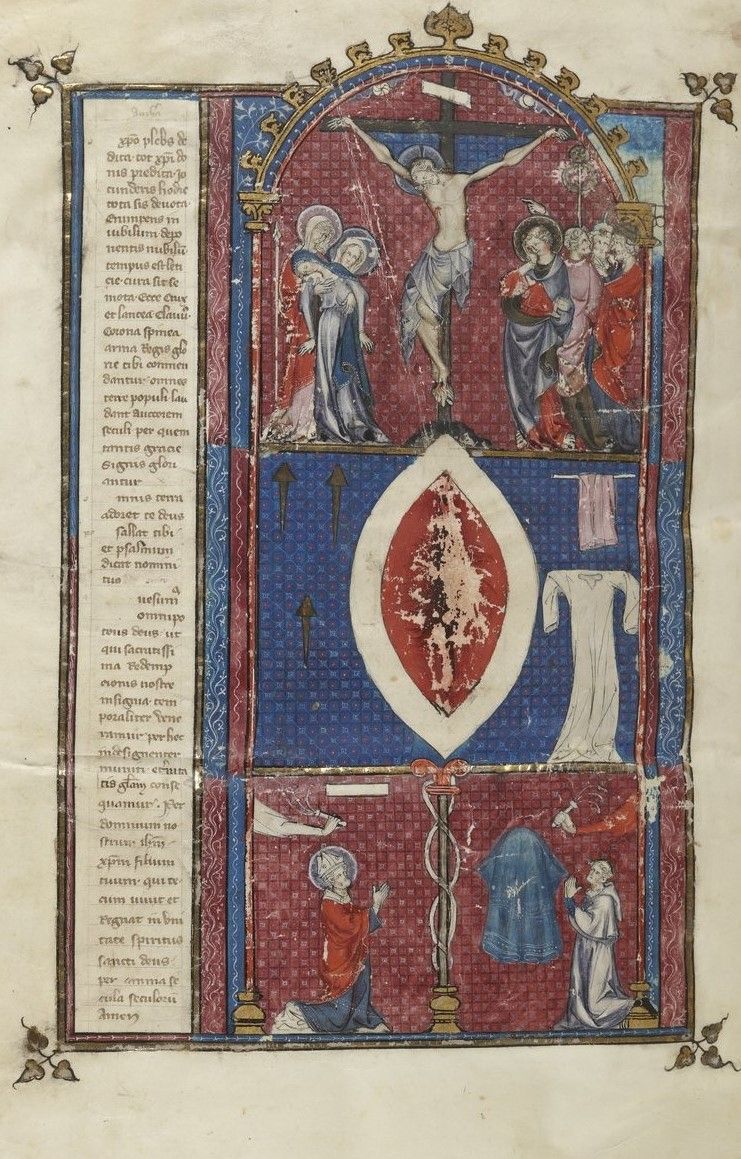 xp̄o plebs de
dita tot xp̄i do
nis predita Jo
cunderis hodie
tota sis deuota
Erumpens in
iubilum depo
nentis nubilū
tempus est leti
cie cura sit se
mota Ecce Crux
et lancea Claui
Corona spinea
arma Regis glo
rie tibi commen
dantur omnes
terre populi lau
dant auctorem
seculi per quem
tantis gracie
Signis glori
antur
mnis terra
adoret te deus
psallat tibi
et psalmum
dicat nomini
tuo
uesum̄
omnipo
tens deus ut
qui sacratissi
ma Redemp
cionis nostre
insignia tem
poraliter vene
ramur per hec
indesinenter
muniti
tis glām conse
quamur. Per
dominum no
strum ihm̄
xp̄m filium
tuum. qui te
cum uiuit et
Regnat in vni
tate spiritus
sancti deus
per omnia se
cula seculorū
Amen